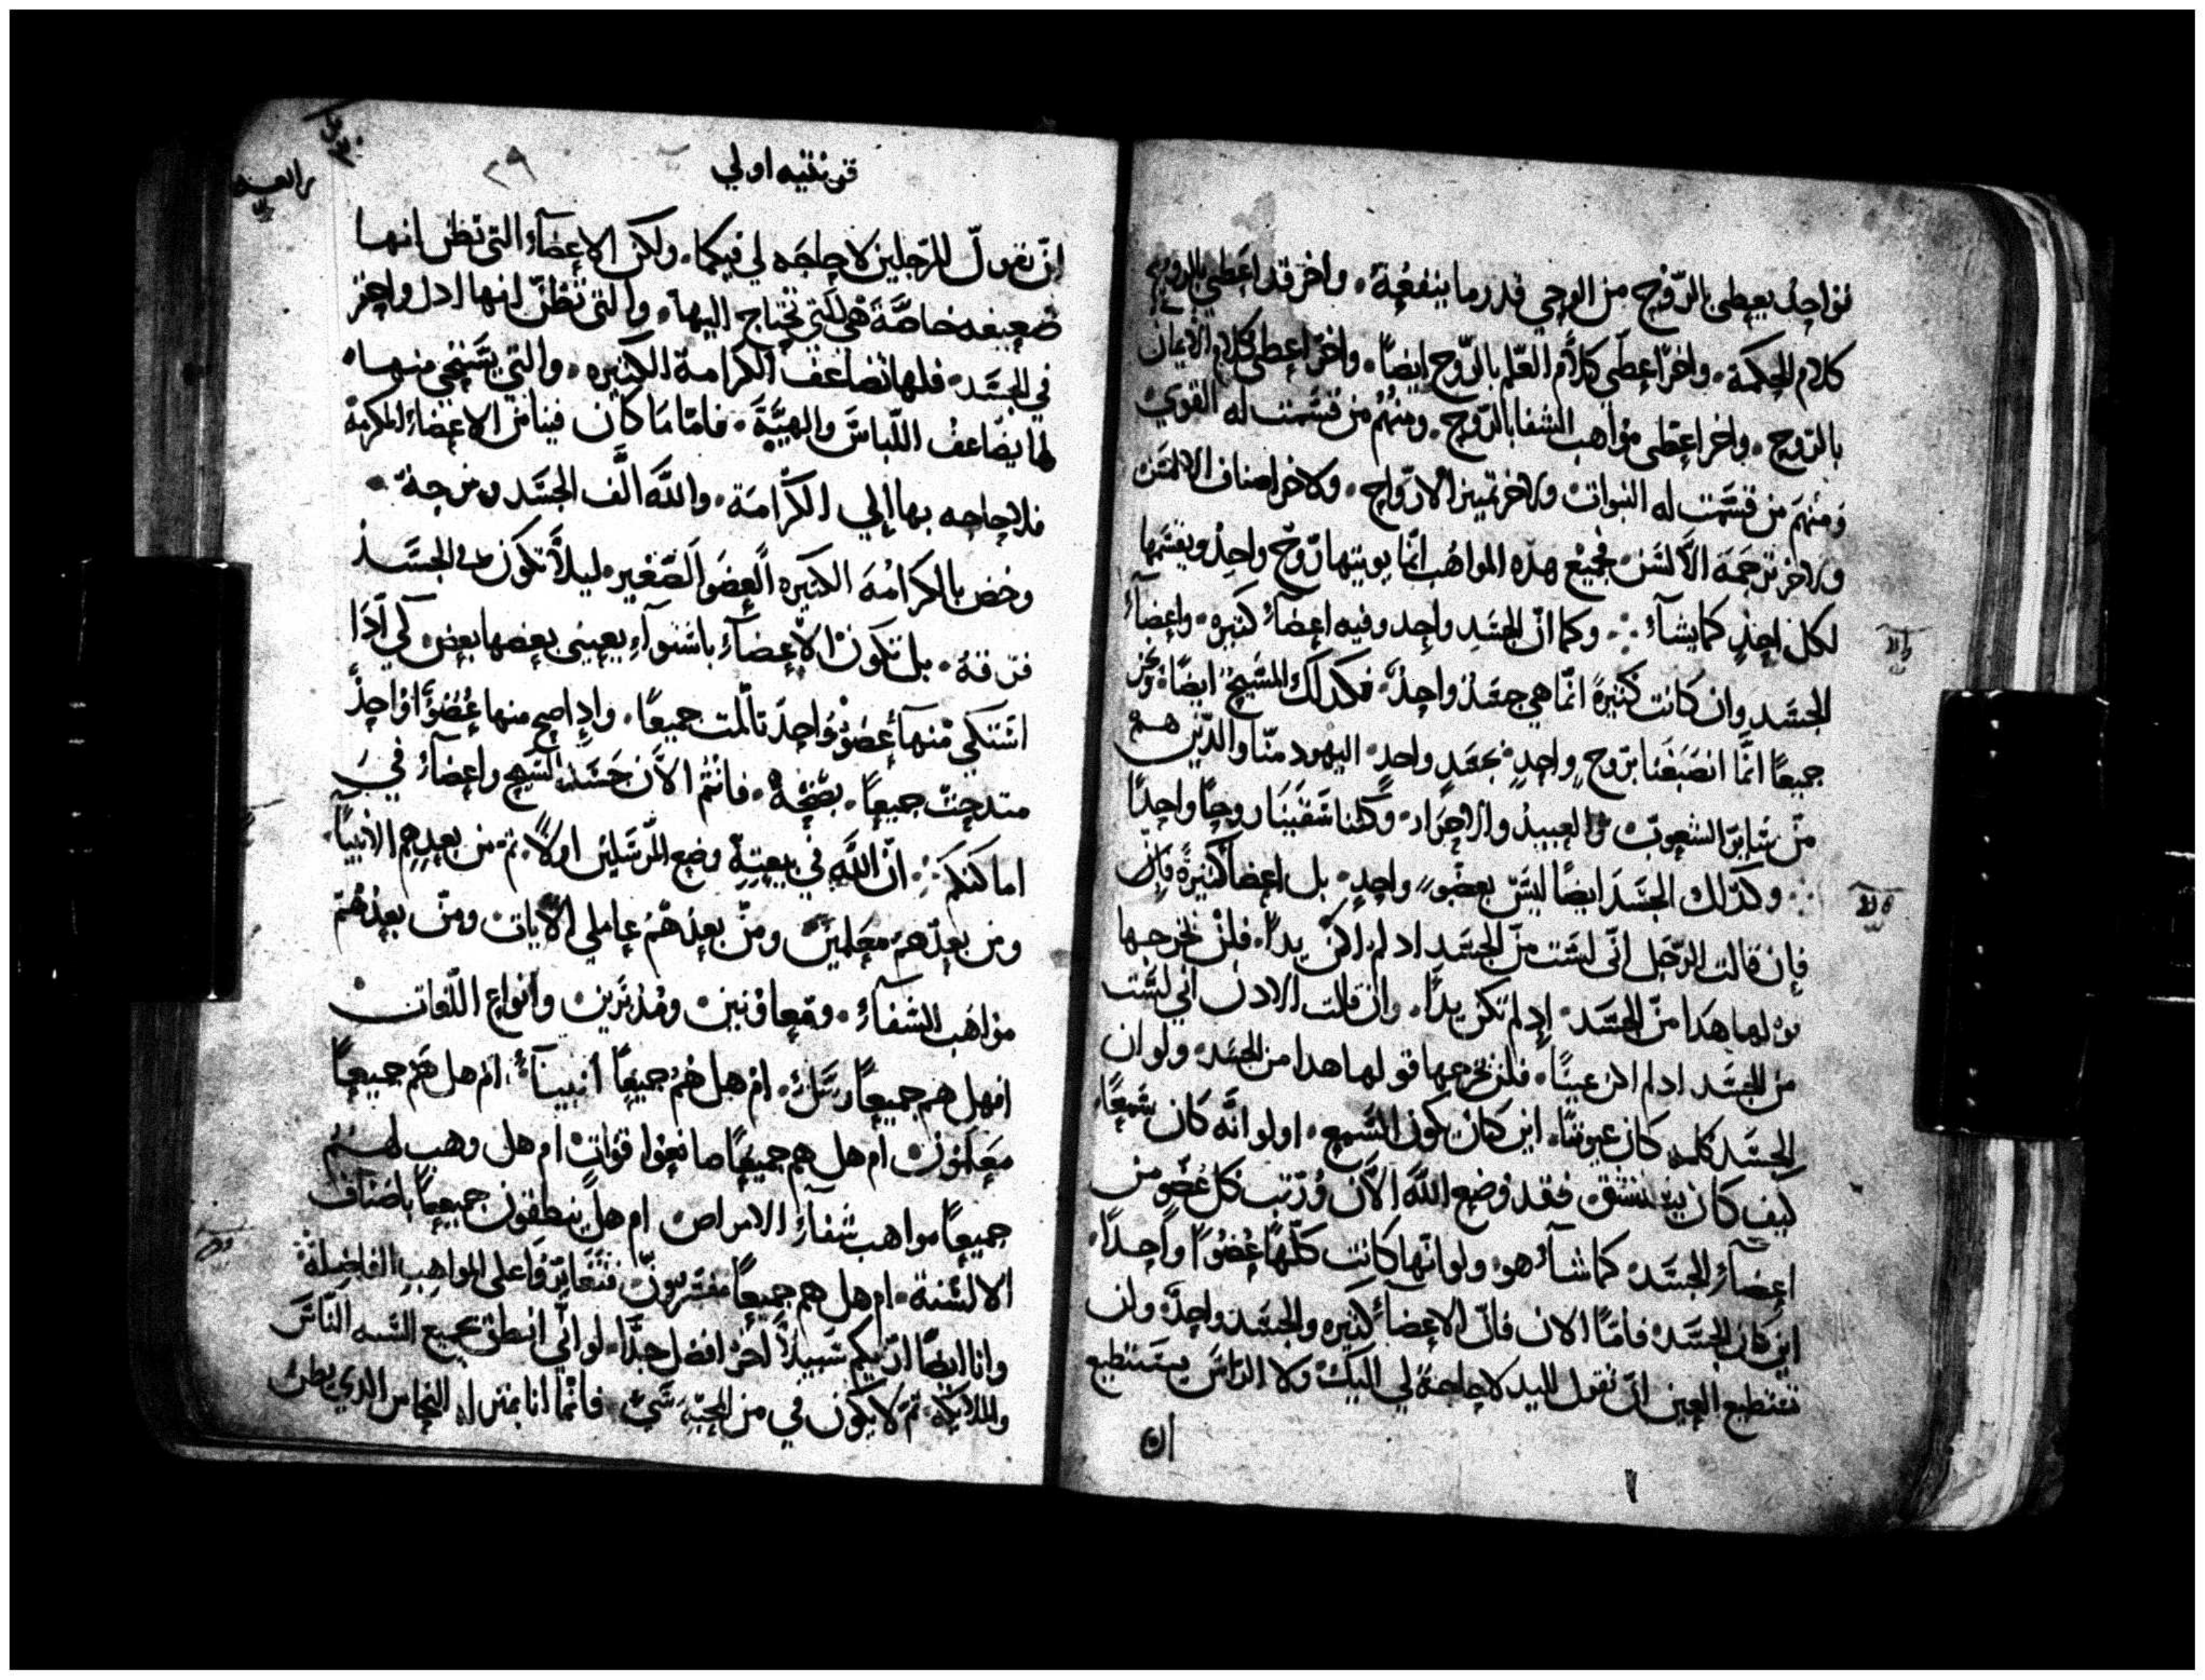 فواحد يعطى بالروح من الوحي قدر ما ينفعه. واخر قد اعطي بالروح
كلام الحكمة. واخر اعطى كلام العلم بالروح ايضا. واخر اعطى كلام الايمان
بالروح. واخر اعطى مواهب الشفا بالروح. ومنهم من قسمت له القوي
ومنهم من قسمت له النبوات ولاخر تمييز الارواح. ولاخر اصناف الالسن
ولاخر ترجمة الالسن. فجميع هذه المواهب انما يويتها روح واحد ويقسمها
لكل احد كما يشآء ∴ وكما ان الجسد واحد وفيه اعضآء كثيره. واعضآء
الجسد وان كانت كثيرة انما هي جسد واحد. فكدلك المسيح ايضا. ونحن
جميعا انما انصبغنا بروح واحد بجسد واحد. اليهود منا والدين هم
من ساير الشعوب والعبيد والاحرار. وكلنا سقينا روحا واحدا
∴ وكدلك الجسد ايضا ليس بعضو واحد. بل اعضا كثيرة
فان قالت الرجل انى لست من الجسد اد لم اكن يدا. فلن يخرجها
قولها هدا من الجسد. اد لم تكن يدا. وان قالت الادن اني لست
من الجسد اد لم اكن عينا. فلن يخرجها قولها هدا من الجسد. ولو ان
الجسد كله كان عيونا. اين كان يكون السمع. اولو انه كان سمعا
كيف كان يستنشق. فقد وضع الله الآن ورتب كل عضو من
اعضآء الجسد. كما شآء هو. ولو انها كانت كلها عضوا واحدا.
اين كان الجسد. فاما الان فان الاعضآء كثيره والجسد واحد. ولن
تستطيع العين ان تقول لليد لا حاجة لي اليك. ولا الراس يستطيع
ان
قرنتيه اولي
٢٩
ان يقول للرجلين لا حاجه لي فيكما. ولكن الاعضآء التي تظن انها
ضعيفه خاصة هي التي تحتاج اليها. والتى تظن انها ادل واحقر
في الجسد. فلها تضاعف الكرامة الكثيره. والتي يستحى منها.
لها يضاعف اللباس والهيية. فاما ما كان فينا من الاعضاء المكرمة
فلا حاجه بها الي الكرامة. والله الف الجسد ومزجه.
وخص بالكرامه الكثيره العضو الصغير. ليلا تكون فى الجسد
فرقة. بل تكون الاعضآء باستوآء يعينى بعضها بعض. لكي ادا
اشتكي منها عضو واحد تالمت جميعا. واد اصح منها عضوا واحد
متدحت جميعا. بصحة. فانتم الآن جسد المسيح واعضآء في
اماكنكم ∴ ان الله في بيعته وضع المرسلين اولا. تم من بعدهم الانبيا.
ومن بعدهم معلمين ومن بعدهم عاملي الآيات ومن بعدهم
مواهب الشفآء. ومعاونين ومدبرين وانواع اللغات
افهل هم جميعا رسل. ام هل هم جميعا انبيآء. ام هل هم جميعا
معلمون ام هل هم جميعا صانعوا قوات ام هل وهب لهم
جميعا مواهب شفآء الامراض ام هل ينطقون جميعا باصناف
الالسنة. ام هل هم جميعا مفسرون فتغايروا على المواهب الفاضلة
وانا ايضا اريكم سبيلا اخر افضل جدا. لو اني انطق بجميع السنه الناس
والملايكة. تم لا يكون في من المحبة شي. فانما انا بمنزله النحاس الدي يطن